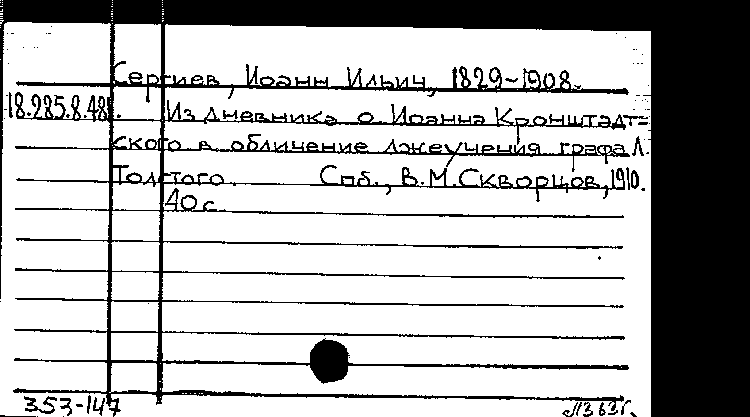 Сергиев, Иоанн Ильич, 1829-1908.
18.285.8.48. Из дневника о. Иоанна Кронштадт=
ского в обличение лжеучения графа Л.
Толстого. Спб., В.М.Скворцов, 1910.
40 с
353-147